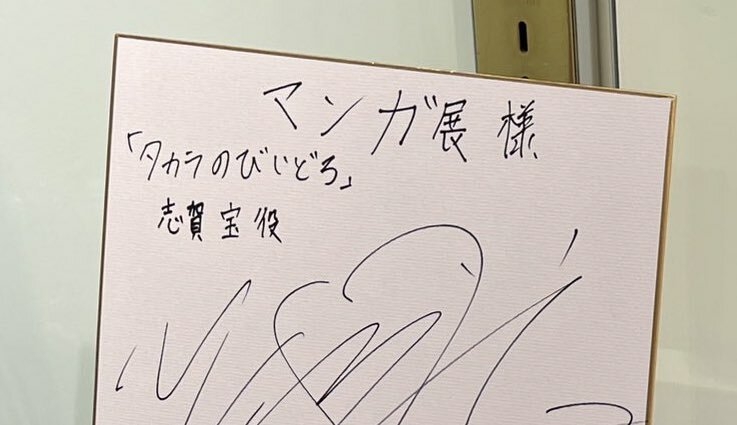 マンガ展 様
「タカラのびいどろ」
志賀 宝 役